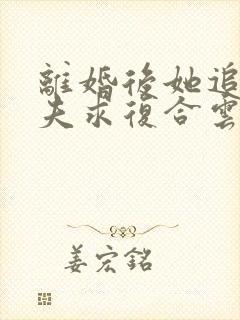 離婚後她追
夫求復合雲
姜宏銘